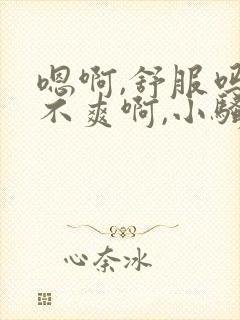 嗯啊,舒服吗
不爽啊,小骚
心奈冰